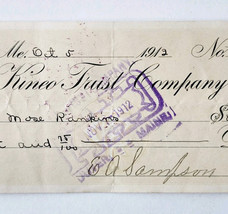 Me. Oct 5 1912 No.
Kineo Trust Company
Mose Rankins
and 75/100
NOV 1912
MAINE
E A Sampson